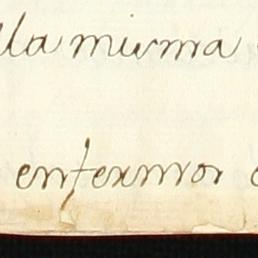 lla misma
enfermos